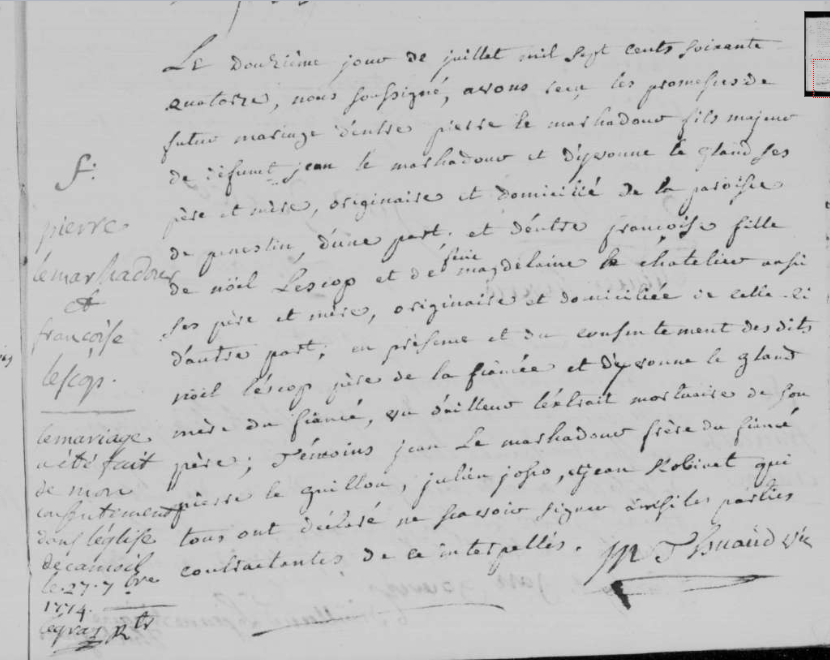 f:
pierre
lemarhadour
et
françoise
lescop.
lemariage
a été fait
de mon
consentement
dans l'église
de camoël
le 27. 7bre
1774.
legray Rtr
Le douzième jour de juillet mil sept cents soixante
quatorze, nous soussigné, avons reçu les promesses de
futur mariage d'entre pierre le marhadour fils majeur
de défunt jean le marhadour et d'yvonne le gland ses
père et mère, originaire et domicilié de la paroisse
de penestin, d'une part, et d'entre françoise fille
de nöel Lescop et de feüe magdelaine le châtelier aussi
ses père et mère, originaire et domiciliée de celle-ci
d'autre part, en présence et du consentement desdits
nöel lescop père de la fiancée et d'yvonne le gland
mère du fiancé, vu d'ailleur l'extrait mortuaire de son
père; Témoins jean Le marhadour frère du fiancé
pierre le guillou, julien joho, et jean Robinet qui
tous ont déclaré ne scavoir signer ainsi les parties
contractantes de ce interpellés.